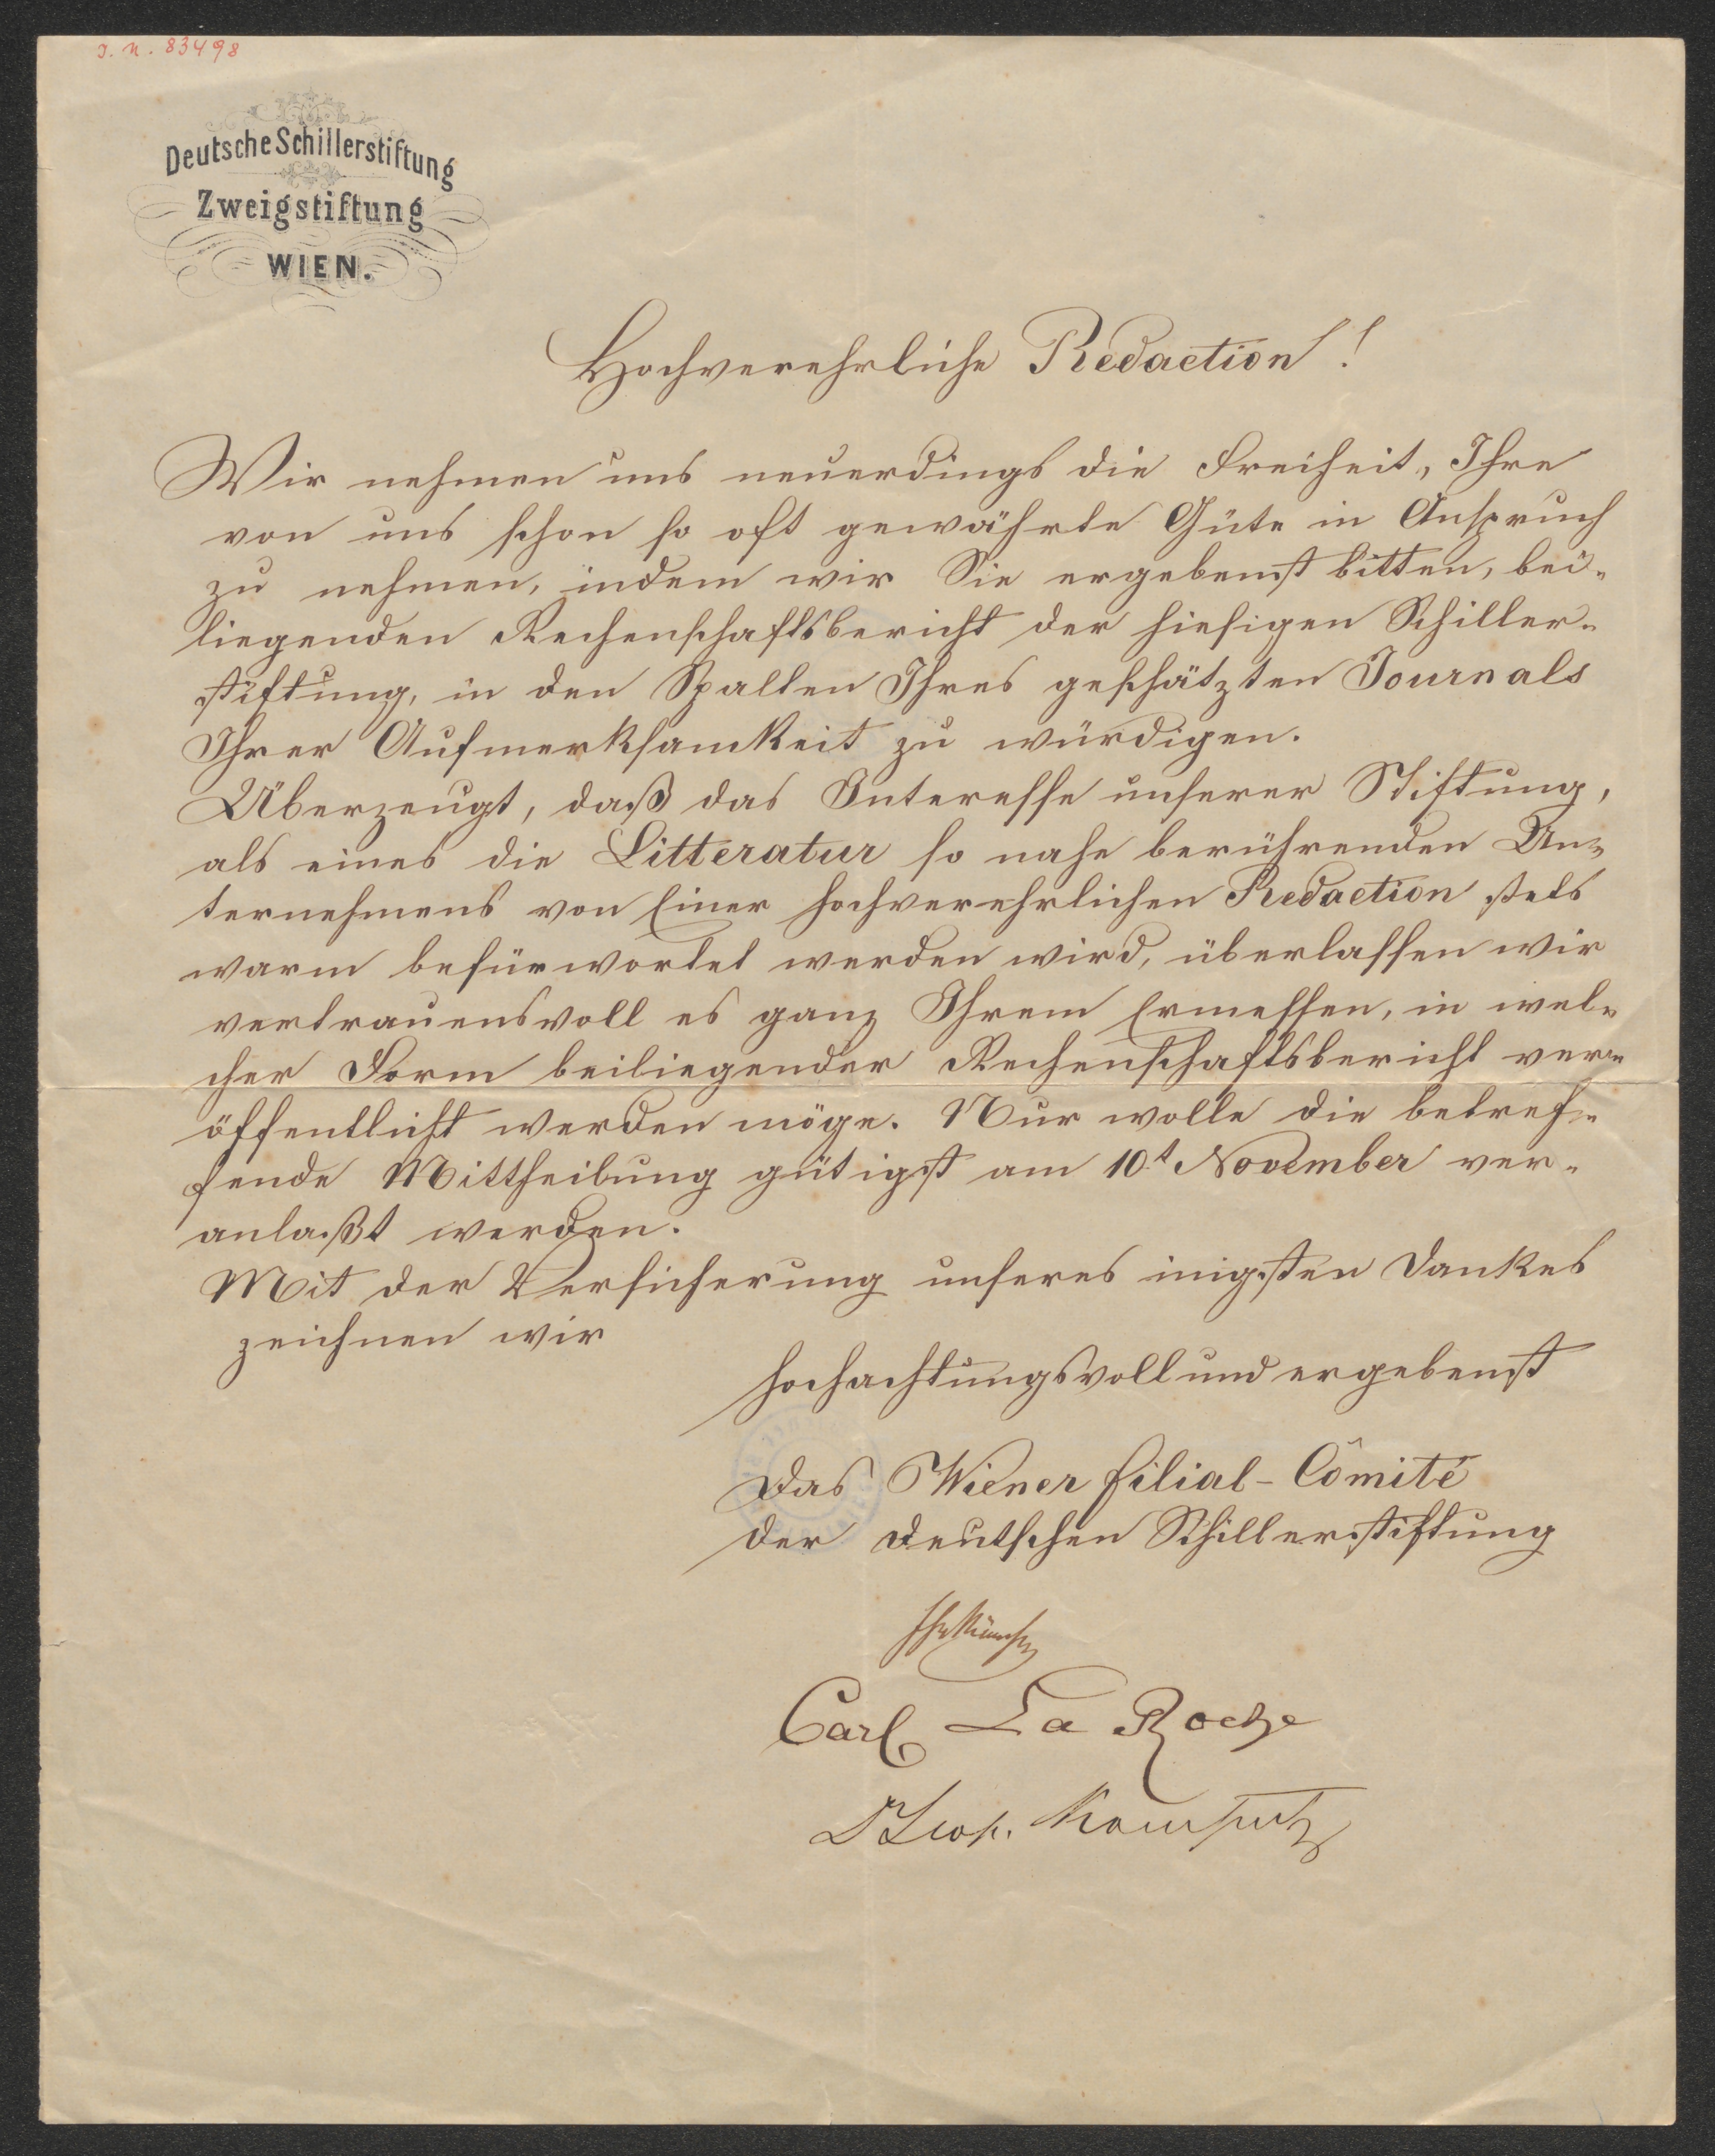 I. N. 83498
Deutsche Schillerstiftung
Zweigstiftung
WIEN.
Hochverehrliche Redaction!
Wir nehmen uns neuerdings die Freiheit, Ihre
von uns schon so oft gewährte Güte in Anspruch
zu nehmen, indem wir Sie ergebenst bitten, bei-
liegenden Rechenschaftsbericht der hiesigen Schiller-
stiftung, in den Spalten Ihres geschätzten Journals
Ihrer Aufmerksamkeit zu würdigen.
Überzeugt, daß das Interesse unserer Stiftung,
als eines die Litteratur so nahe berührenden Un-
ternehmens von Einer hochverehrlichen Redaction stets
warm befürwortet werden wird, überlassen wir
vertrauensvoll es ganz Ihrem Ermessen, in wel-
cher Form beiliegender Rechenschaftsbericht ver-
öffentlicht werden möge. Nur wolle die betref-
fende Mittheilung gütigst am 10t November ver-
anlaßt werden.
Mit der Versicherung unseres inigsten Dankes
zeichnen wir
hochachtungsvoll und ergebenst
Das Wiener Filial-Comité
der deutschen Schillerstiftung
Carl La Roche
D Leop. Kompert